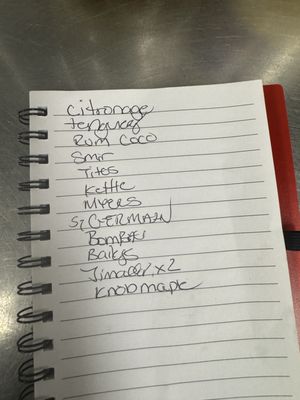 citronage
tanquray
Rum coco
Smir
Tites
Kettle
Myers
St GERMAIN
Bombay
Baileys
Jimador x2
Knob maple